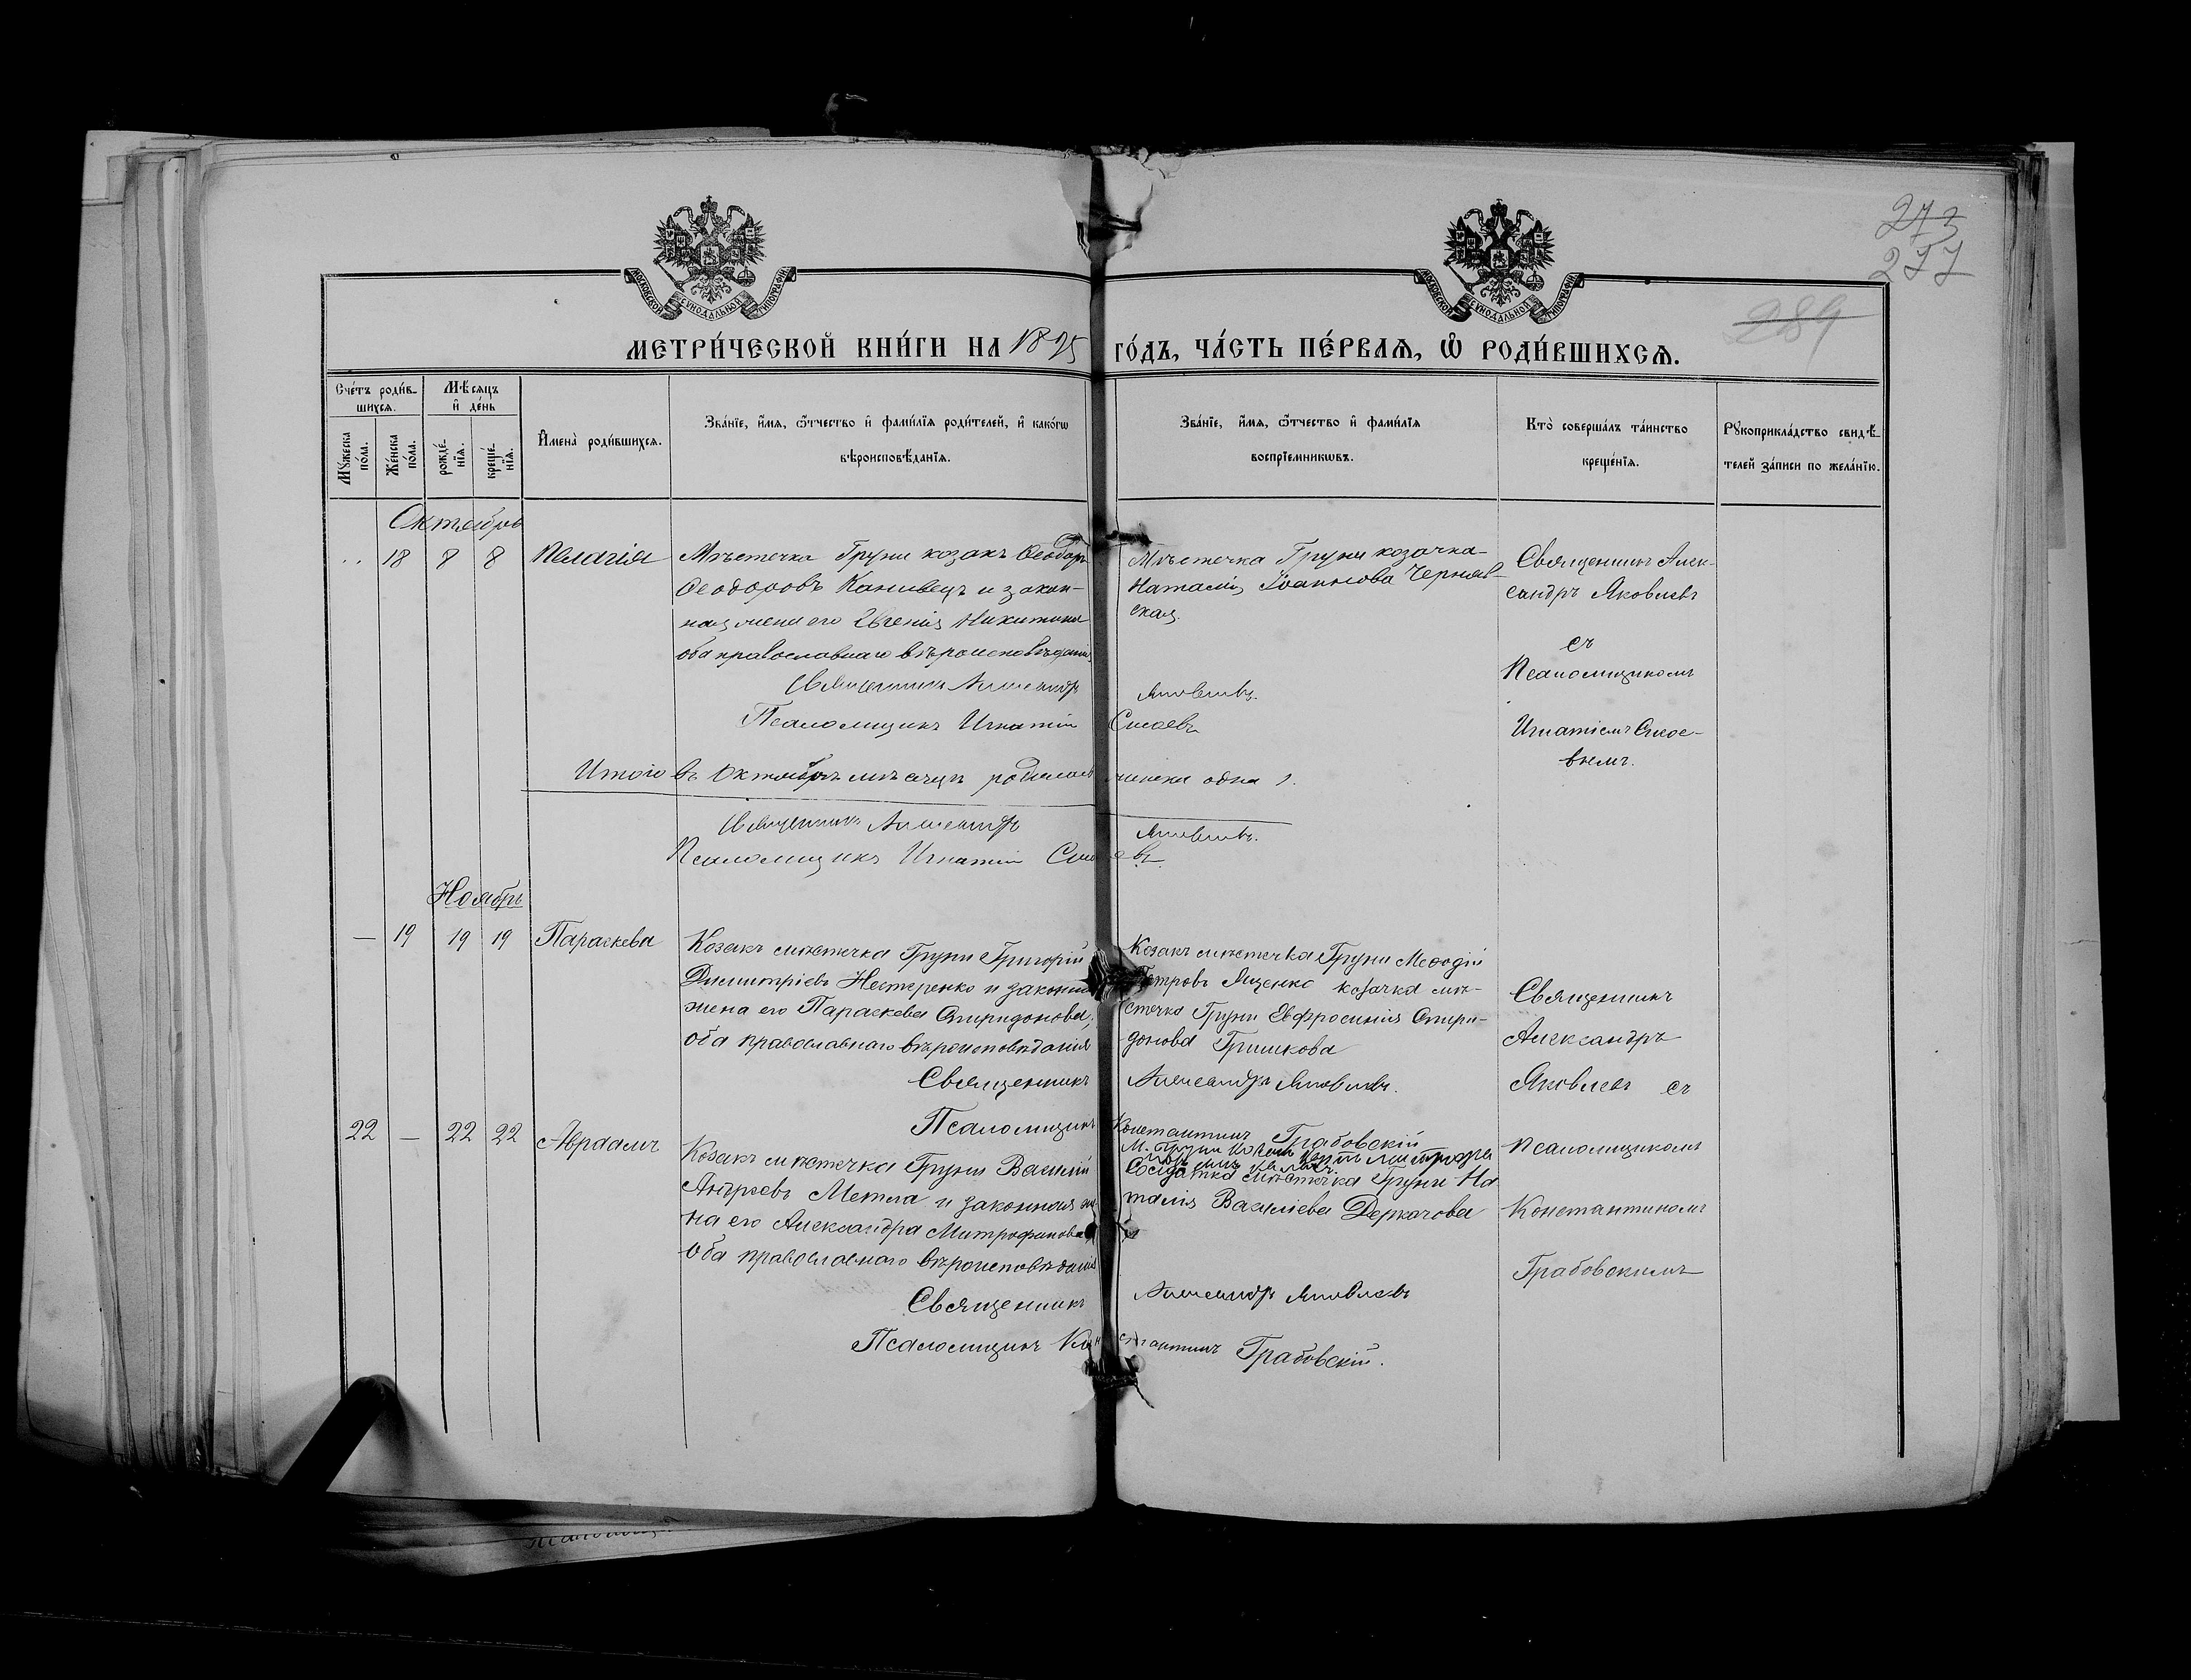 273
277
284
МОСКОВСКОЙ СѴНОДАЛЬНОЙ ТИПОГРАФІИ
МОСКОВСКОЙ СѴНОДАЛЬНОЙ ТИПОГРАФІИ
МЕТРИ́ЧЕСКОЙ КНИ́ГИ НА 1895 ГО́ДЪ, ЧА́СТЬ ПЕ́РВАѦ, Ѡ҆ РОДИ́ВШИХСѦ.
Сче́тъ роди́в-
шихсѧ.
Мѣ́сѧцъ
и҆ де́нь
Мꙋ́жеска
по́ла.
Же́нска
по́ла.
рожде́-
нїѧ.
креще́-
нїѧ.
И҆мена̀ роди́вшихсѧ.
Зва́нїе, и҆́мѧ, ѻ҆́тчество и҆ фами́лїѧ роди́телей, и҆ како́гѡ
вѣроисповѣ́данїѧ.
Зва́нїе, и҆́мѧ, ѻ҆́тчество и҆ фами́лїѧ
воспрїе́мникѡвъ.
Кто̀ соверша́лъ та́инство
креще́нїѧ.
Рꙋкоприкла́дство свидѣ́-
телей за́писи по жела́нїю.
Октябрь
18 8 8 Пелагія
Мѣстечка Груни козакъ Ѳеодоръ
Ѳеодоровъ Канивецъ и закон-
ная жена его Евгенія Никитина
оба православнаго вѣроисповѣданія
Мѣстечка Груни козачка
Наталія Іоаннова Черняв-
ская
Священникъ Алек-
сандръ Яковлевъ
съ
Псаломщикомъ
Игнатіемъ
Священникъ Александръ Яковлевъ
Псаломщикъ Игнатій
Итого въ Октябрѣ мѣсяцѣ родилось женска одна 1.
Священникъ Александръ Яковлевъ.
Псаломщикъ Игнатій
Ноябрь
— 19 19 19 Параскева
Козакъ мѣстечка Груни Григорій
Димитріевъ Нестеренко и законная
жена его Параскева Спиридонова;
оба православнаго вѣроисповѣданія
Козакъ мѣстечка Груни Меѳодій
Петровъ Яценко козачка мѣ-
стечка Груни Евфросинія Спири-
донова Гришкова
Священникъ
Александръ
Яковлевъ съ
Псаломщикомъ
Константиномъ
Грабовскимъ
Священникъ Александръ Яковлевъ.
Псаломщикъ Константинъ Грабовскій
22 — 22 22 Авраамъ
Козакъ мѣстечка Груни Василій
Андреевъ Метла и законная же-
на его Александра Митрофанова
Оба православнаго вѣроисповѣданія
Солдатка мѣстечка Груни На
талія Василіева Деркачова
Священникъ Александръ Яковлевъ
Псаломщикъ Константинъ Грабовскій.